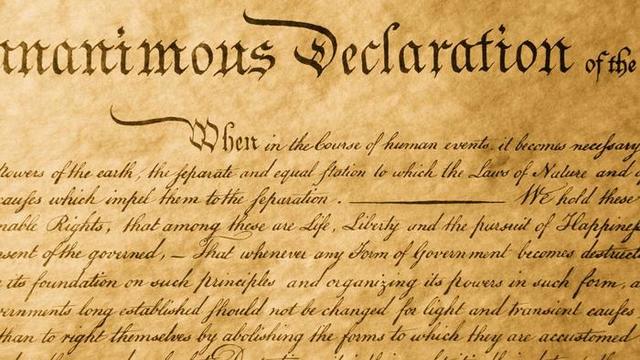 nanimous Declaration of the
When in the Course of human events, it becomes necessary
Powers of the earth, the separate and equal station to which the Laws of Nature and
causes which impel them to the separation. We hold these
nable Rights, that among these are Life, Liberty and the pursuit of Happiness
nsent of the governed, — That whenever any Form of Government becomes destructi
its foundation on such principles and organizing its powers in such form, a
vernments long established should not be changed for light and transient causes
than to right themselves by abolishing the forms to which they are accustomed